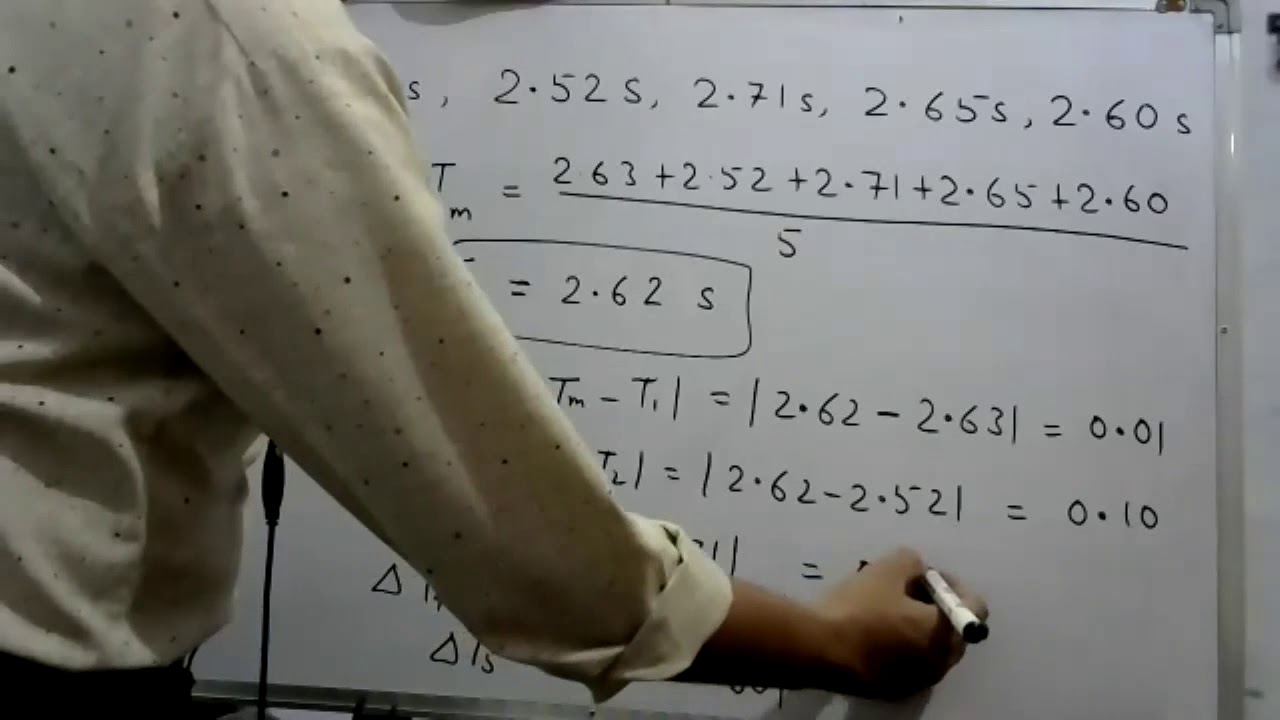 s, 2.52 s, 2.71 s, 2.65 s, 2.60 s
T m = 2.63 + 2.52 + 2.71 + 2.65 + 2.60
5
= 2.62 s
Tm - T1| = |2.62 - 2.63| = 0.01
T2| = |2.62 - 2.52| = 0.10
=
Δ
Δ T5